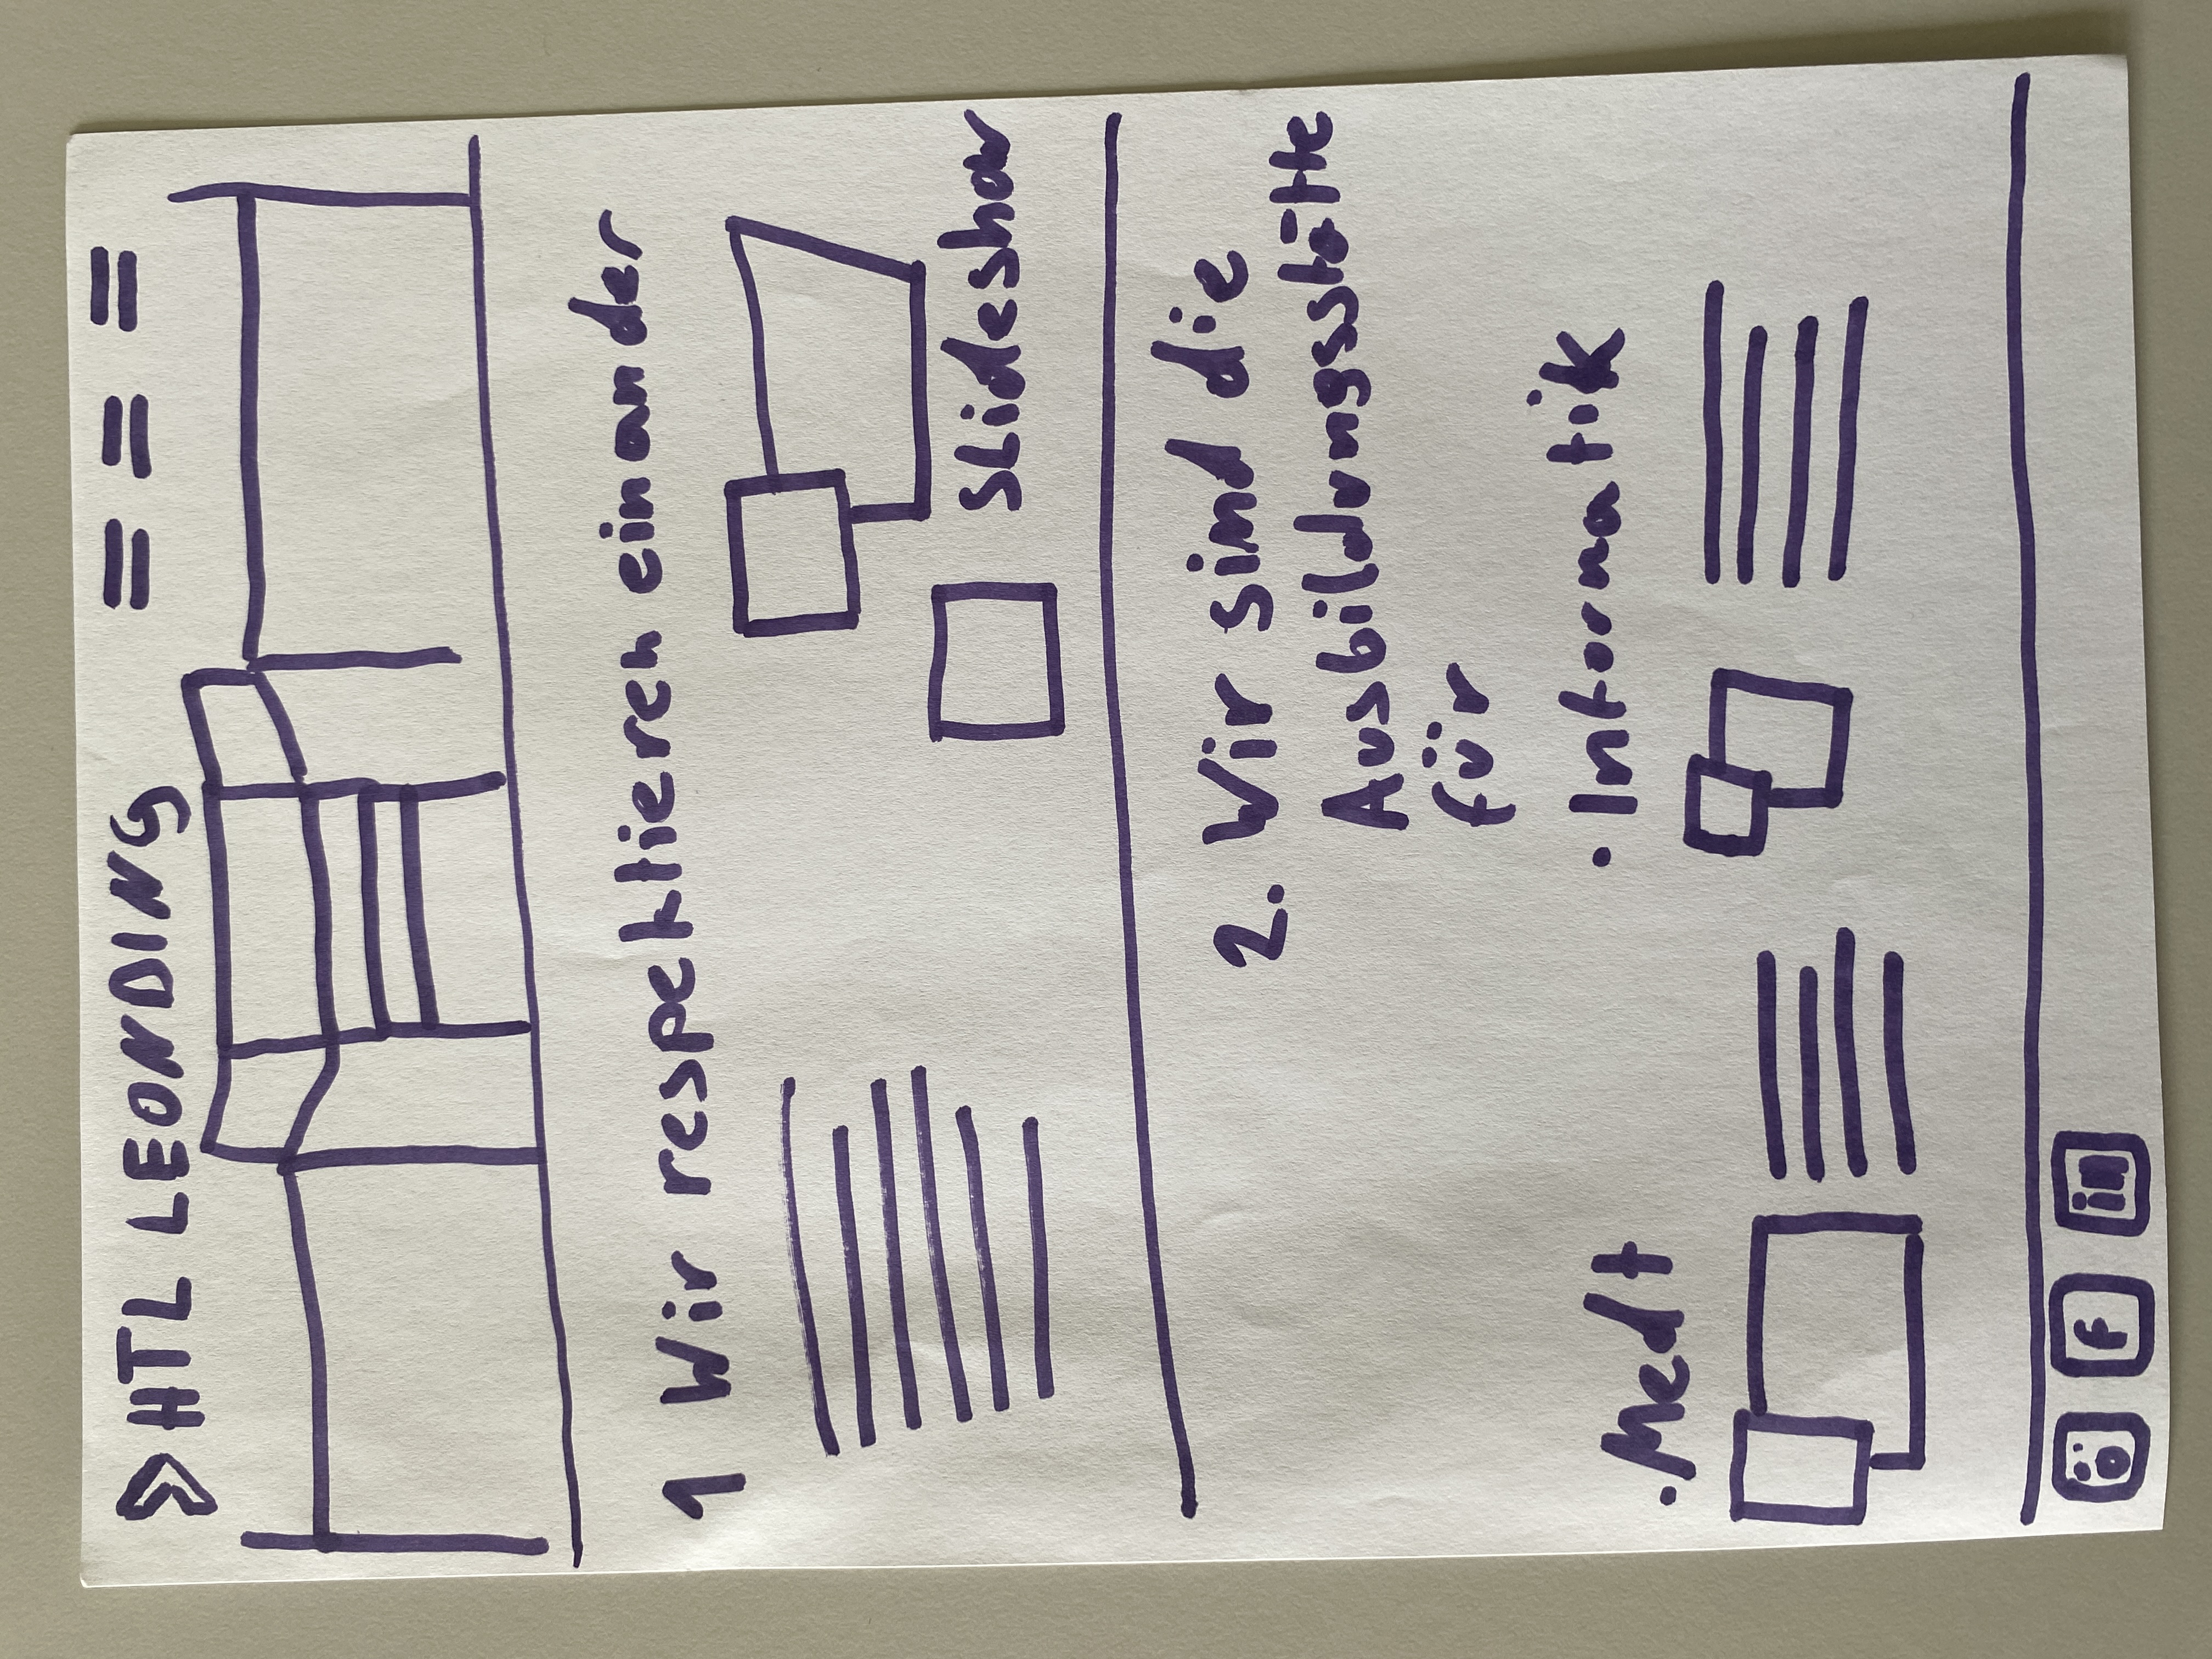 HTL LEONDING
1 Wir respektieren einander
Slideshow
2. Wir sind die
Ausbildungsstätte
für
· Informatik
· Medt
f
in